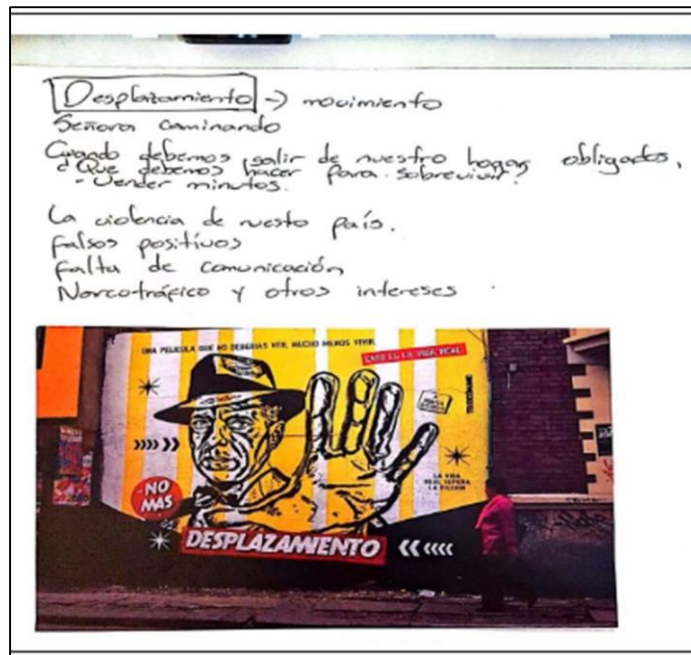 Desplazamiento -> movimiento
Señora caminando
Cuando debemos salir de nuestro hogar obligados,
¿Que debemos hacer para sobrevivir?
- Vender minutos.
La violencia de nuesto país.
falsos positivos
falta de comunicación
Narcotráfico y otros intereses
UNA PELICULA QUE NO DEBERIAS VER, MUCHO MENOS VIVIR.
ESTO ES LA VIDA REAL
NO
MAS
LA VIDA
REAL SUPERA
LA FICCION
DESPLAZAMIENTO